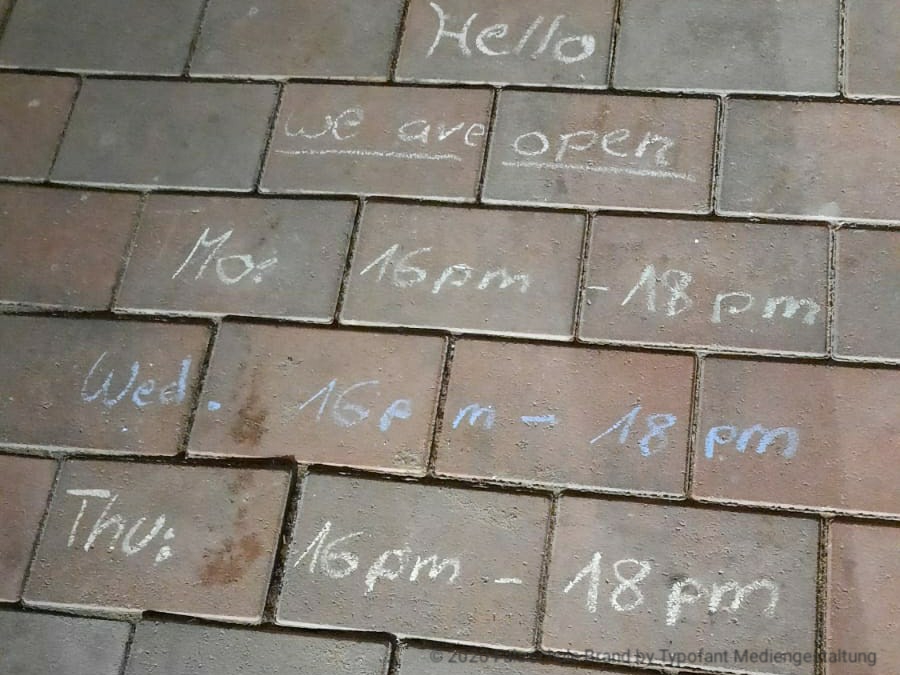 Hello
we are open
Mo: 16pm - 18pm
Wed. 16pm - 18pm
Thu: 16pm - 18pm
© 2020 Brand by Typofant Mediengestaltung